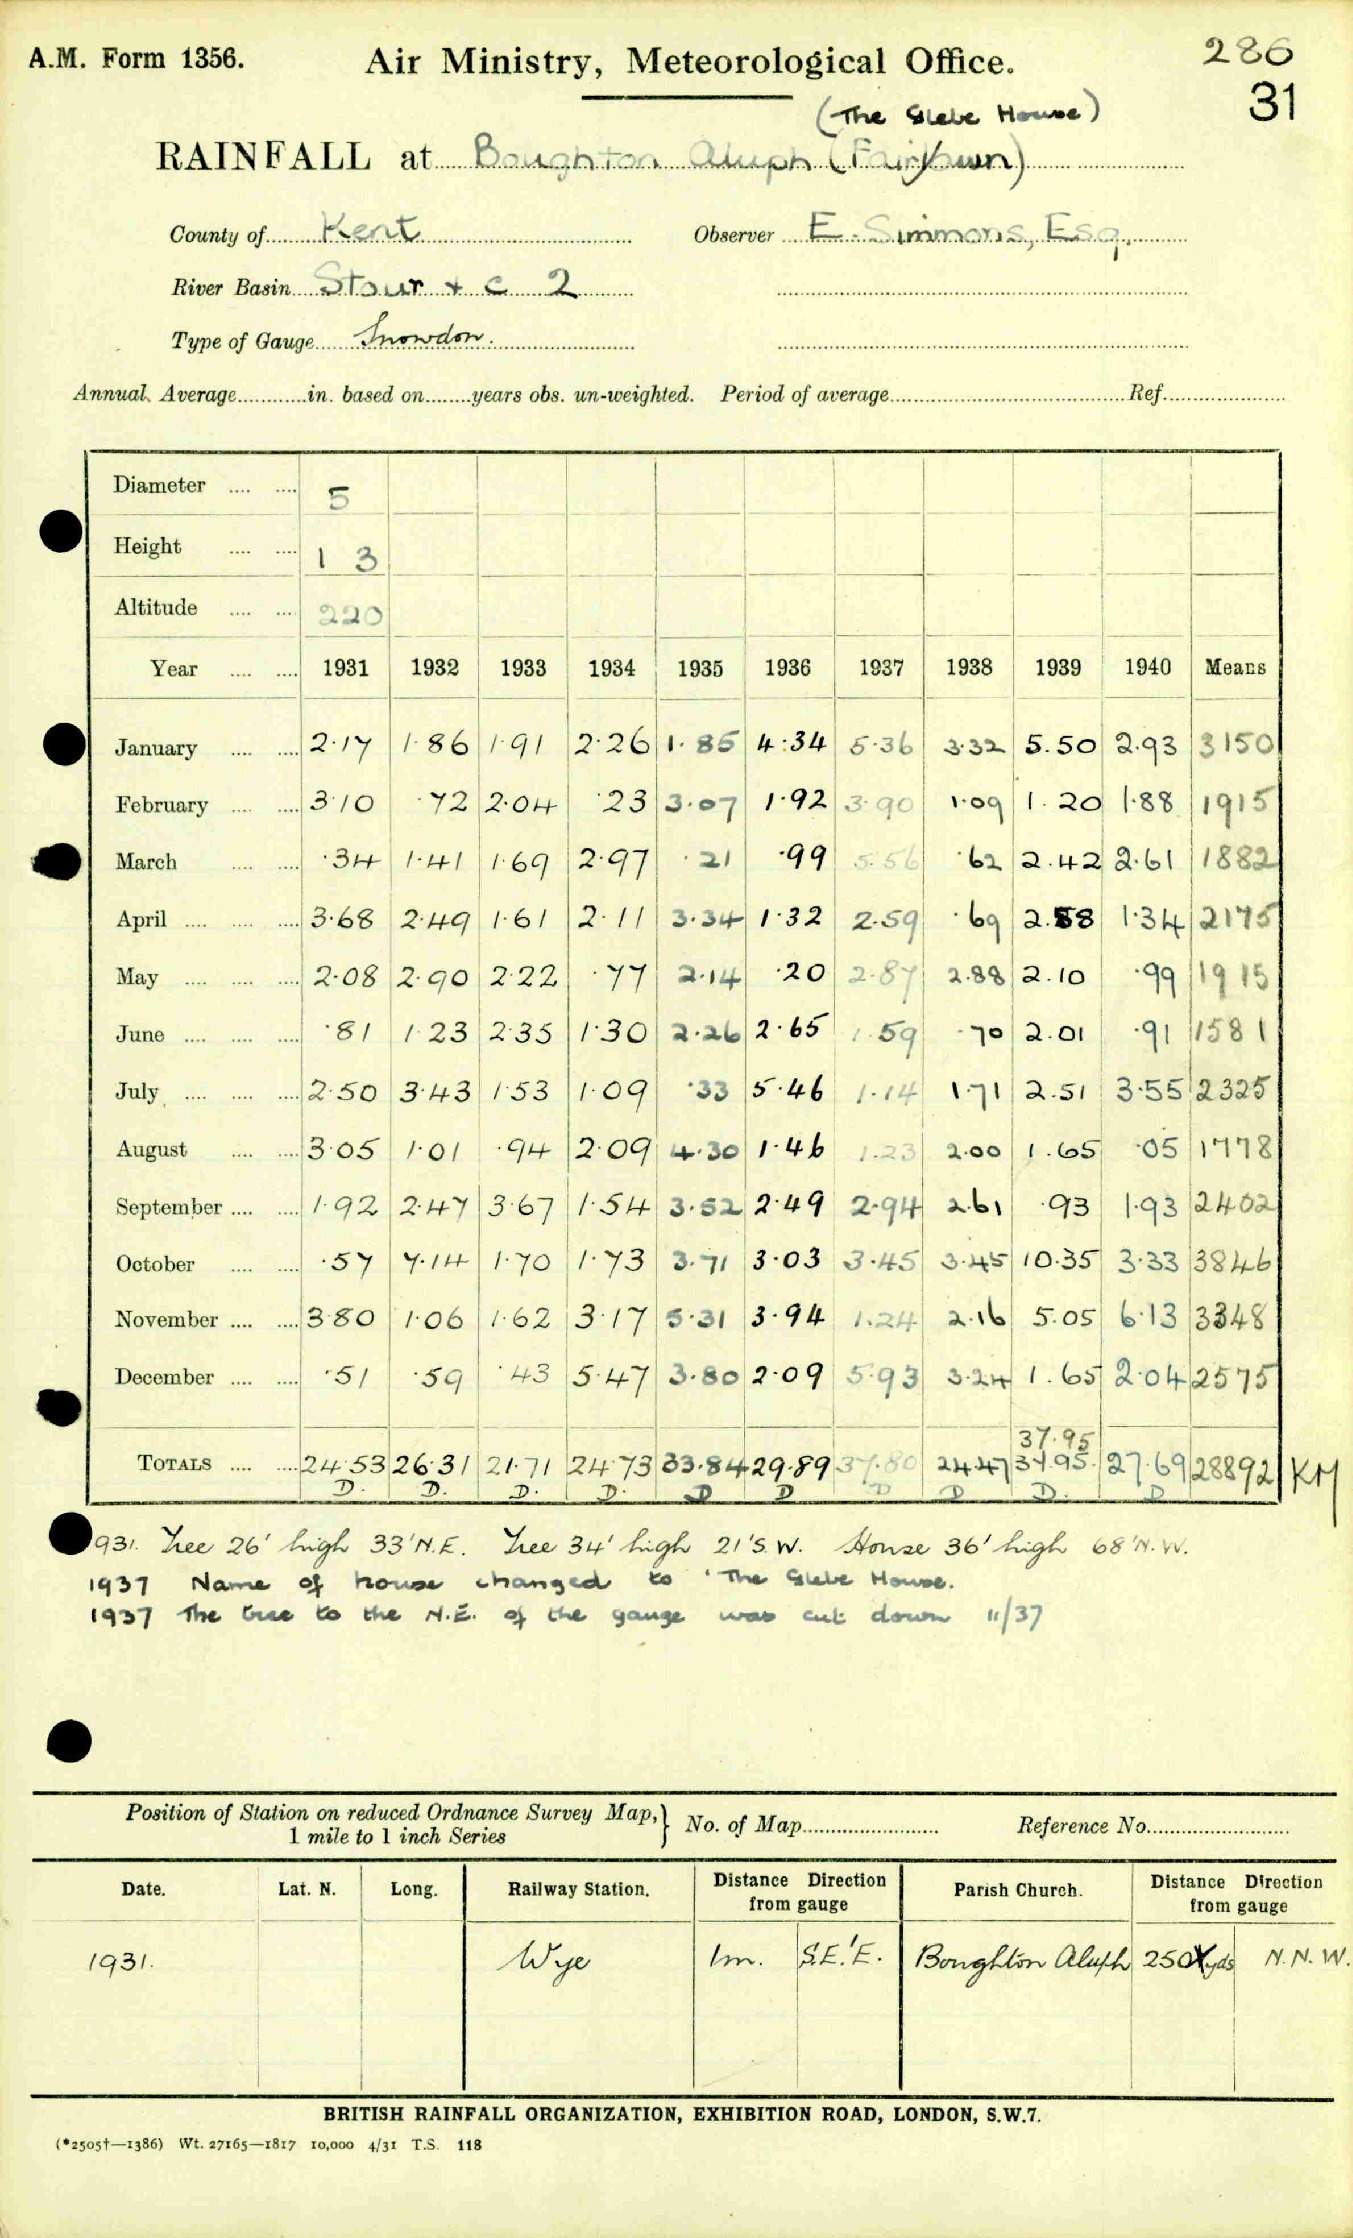 A.M. Form 1356. Air Ministry, Meteorological Office. 286
31
(The Glebe House)
RAINFALL at Boughton Aluph (Fairlawn)
County of Kent Observer E. Simmons, Esq.
River Basin Stour & C 2
Type of Gauge Snowdon.
Annual Average in. based on years obs. un-weighted. Period of average Ref.
Diameter 5
Height 1 3
Altitude 220
Year 1931 1932 1933 1934 1935 1936 1937 1938 1939 1940 Means
January 2·17 1·86 1·91 2·26 1·85 4·34 5·36 3·32 5.50 2.93 3150
February 3·10 ·72 2·04 ·23 3·07 1·92 3·90 1·09 1.20 1·88 1915
March ·34 1·41 1·69 2·97 ·21 ·99 5·56 ·62 2.42 2·61 1882
April 3·68 2·49 1·61 2·11 3·34 1·32 2·59 ·69 2.58 1·34 2175
May 2·08 2·90 2·22 ·77 2·14 ·20 2·87 2·88 2·10 ·99 1915
June ·81 1·23 2·35 1·30 2·26 2·65 1·59 ·70 2.01 ·91 1581
July 2·50 3·43 1·53 1·09 ·33 5·46 1·14 1·71 2.51 3·55 2325
August 3·05 1·01 ·94 2·09 4·30 1·46 1·23 2·00 1.65 ·05 1778
September 1·92 2·47 3·67 1·54 3·52 2·49 2·94 2·61 ·93 1·93 2402
October ·57 7·14 1·70 1·73 3·71 3·03 3·45 3·45 10·35 3·33 3846
November 3·80 1·06 1·62 3·17 5·31 3·94 1·24 2·16 5.05 6·13 3348
December ·51 ·59 ·43 5·47 3·80 2·09 5·93 3·24 1.65 2·04 2575
37·95
TOTALS 24·53 26·31 21·71 24·73 33·84 29·89 37·80 24·47 37.95 27·69 28892 KM
D. D. D. D. D D D D D. D
931. Tree 26' high 33' N.E. Tree 34' high 21' S.W. House 36' high 68' N.W.
1937 Name of house changed to 'The Glebe House.
1937 The tree to the N.E. of the gauge was cut down 11/37
Position of Station on reduced Ordnance Survey Map, } No. of Map Reference No.
1 mile to 1 inch Series
Date. Lat. N. Long. Railway Station. Distance Direction from gauge Parish Church. Distance Direction from gauge
1931. Wye 1m. S.E.'E. Boughton Aluph 250 yds N.N.W.
BRITISH RAINFALL ORGANIZATION, EXHIBITION ROAD, LONDON, S.W.7.
(*2505†—1386) Wt. 27165—1817 10,000 4/31 T.S. 118